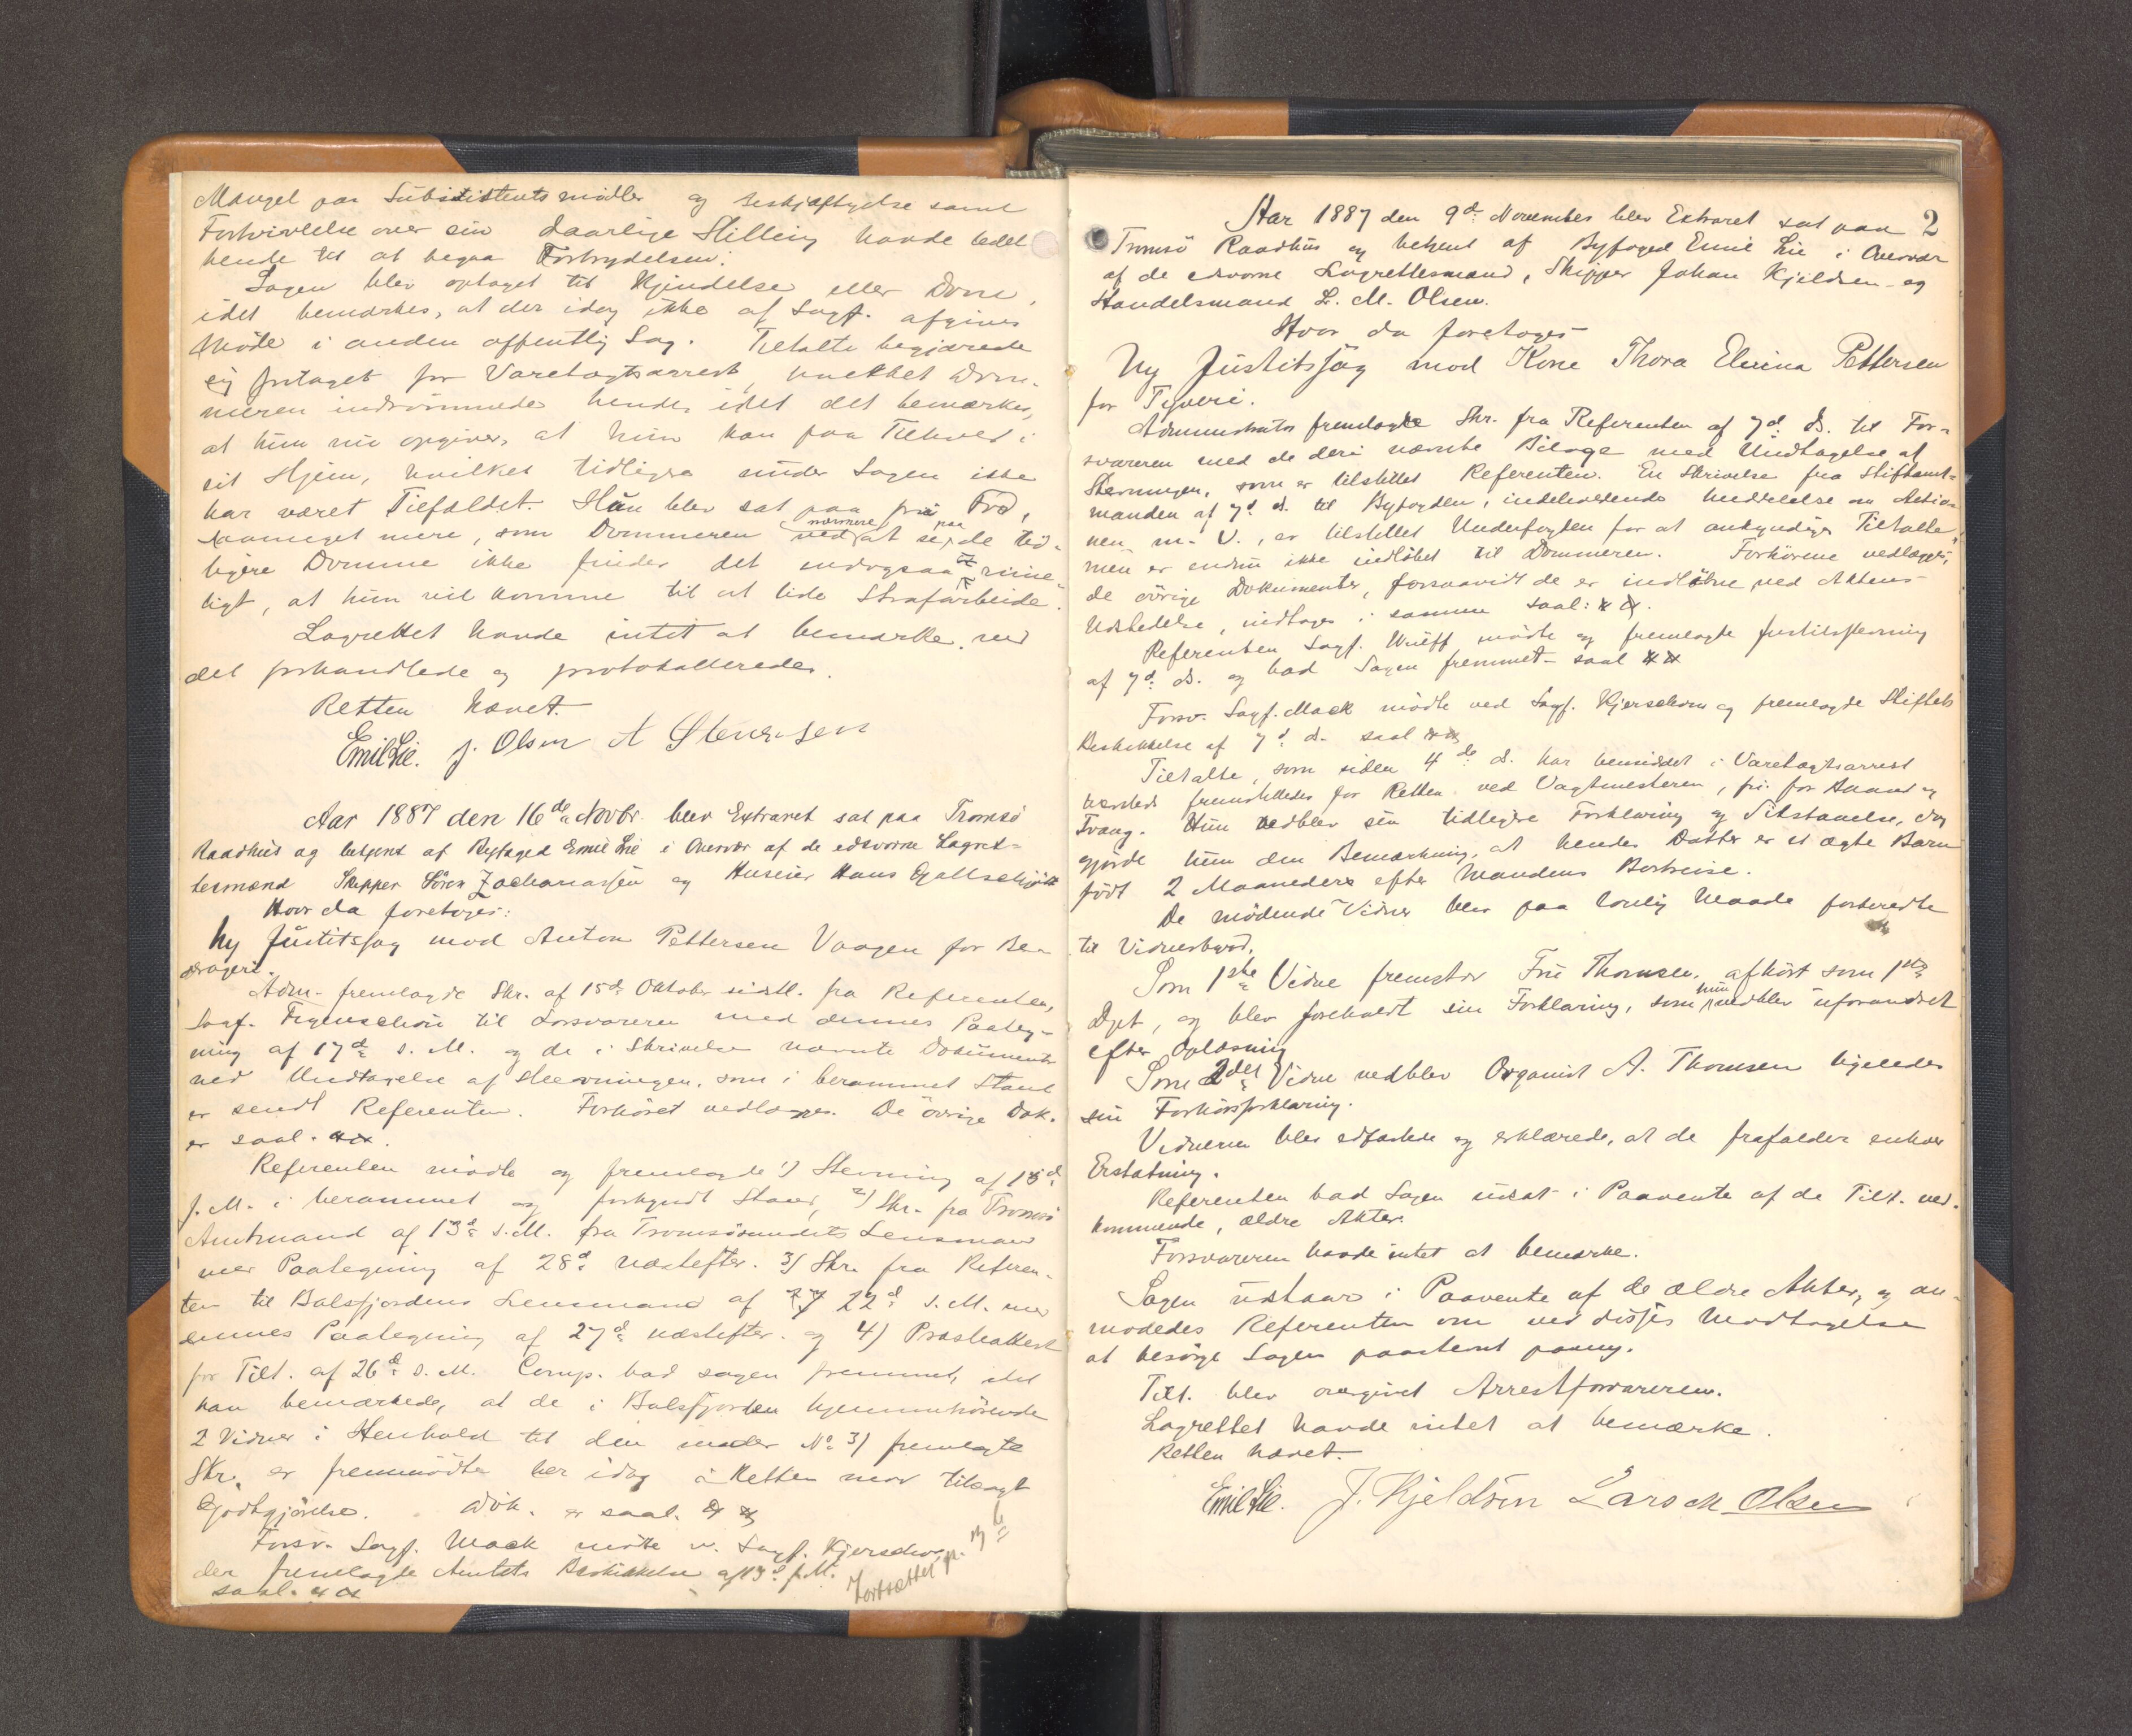 Mangel paa Subsistentsmidler og Beskjæftigelse samt
Fortvivlelse over sin daarlige Stilling havde ledet
hende til at begaa Forbrydelsen.
Sagen blev optaget til Kjendelse eller Dom,
idet bemærkes, at der idag ikke af Sagf. afgives
Møde i anden offentlig Sag. Tiltalte begjærede
sig fritaget for Varetægtsarrest, hvilket Dom-
meren indrømmede hende, idet det bemærkes,
at hun nu opgiver, at hun kan faa Tilhold i
sit Hjem, hvilket tidligere under Sagen ikke
har været Tilfældet. Hun blev sat paa fri Fod,
saameget mere, som Dommeren ved nærmere at se paa de tid-
ligere Domme ikke finder det endogsaa rime-
ligt, at hun vil komme til at lide Strafarbeide.
Lagrettet havde intet at bemærke ved
det forhandlede og protokollerede.
Retten hævet.
Emil Lie. J. Olsen A Stenersen
Aar 1887 den 16de Novbr. blev Extraret sat paa Tromsö
Raadhus og betjent af Byfoged Emil Lie i Overvær af de edsvorne Lagret-
tesmænd Skipper Sören Zachariassen og Huseier Hans
Hvor da foretoges:
Ny Justitssag mod Anton Pettersen Vaagen for Be-
drageri.
Adm. fremlagde Skr. af 15de Oktober sidstl. fra Referenten,
Sagf. til Forsvareren med dennes Paateg-
ning af 17de s. M. og de i Skrivelse nævnte Dokumenter
med Undtagelse af Stevningen, som i berammet Stand
er sendt Referenten. Forhöret vedlægges. De övrige Dok.
er saal.
Referenten mödte og fremlagde 1) Stevning af 15d
f. M. i berammet og forkyndt Stand, 2) Skr. fra Tromsö
Amtmand af 13d s. M. fra Tromsösundets Lensmand
med Paategning af 28d næstefter. 3) Skr. fra Referen-
ten til Balsfjordens Lensmand af 22d s. M. med
dennes Paategning af 27d næstefter. og 4) Præsteattest
for Tilt. af 26d s. M. Comp. bad sagen fremmet, idet
han bemærkede, at de i Balsfjorden hjemmehörende
2 Vidner i Henhold til den under No 3) fremlagte
Skr. er fremmödte her idag i Retten mod tilsagt
Godtgjörelse. Dok. er saal.
Forsv. Sagf. Mack mödte v. Sagf. Kjerschow,
der fremlagte Amtets Beskikkelse af 13d f. M.
saal.
Fortsættes p. 3
2
Aar 1887 den 9d November blev Extraret sat paa
Tromsö Raadhus og betjent af Byfoged Emil Lie i Overvær
af de edsvorne Lagrettesmænd, Skipper Johan Kjeldsen og
Handelsmand L. M. Olsen.
Hvor da foretoges
Ny Justitssag mod Kone Thora Elvina Pettersen
for Tyveri.
Administrator fremlagde Skr. fra Referenten af 7d ds. til For-
svareren med de deri nævnte Bilage med Undtagelse af
Stevningen, som er tilstillet Referenten. En Skrivelse fra Stiftamt-
manden af 7d ds. til Byfogden, indeholdende Meddelelse om Aktio-
nen m. V., er tilstillet Underfogden for at ankyndiges Tiltalte,
men er endnu ikke indløbet til Dommeren. Forhörene vedlægges,
de övrige Dokumenter, forsaavidt de er indløbne ved Aktens
Udstedelse, indtages i samme saal:
Referenten Sagf. Wulff mödte og fremlagte Justitsstevning
af 7d ds. og bad Sagen fremmet saal
Forsv. Sagf. Mack mödte ved Sagf. Kjerschow og fremlagde Stiftets
Beskikkelse af 7d ds. saal
Tiltalte, som siden 4de ds. har henisiddet i Varetægtsarrest
hersteds fremstilledes for Retten ved Vagtmesteren, fri for Baand og
Tvang. Hun vedblev sin tidligere Forklaring og Tilstaaelse, dog
gjorde hun den Bemærkning, at hendes Datter er et ægte Barn
født 2 Maaneder efter Mandens Bortreise.
De mödende Vidner blev paa lovlig Maade forberedte
til Vidnesbyrd.
Som 1ste Vidne fremstod Fru Thomsen, afhört som 1ste
Dept, og blev foreholdt sin Forklaring, som hun vedblev uforandret
efter Oplæsning
Som 2det Vidne vedblev Organist A. Thomsen ligeledes
sin Forhörsforklaring.
Vidnerne blev edfæstede og erklærede, at de frafalder enhver
Erstatning.
Referenten bad Sagen udsat i Paavente af de Tilt. ved-
kommende, ældre Akter.
Forsvareren havde intet at bemærke.
Sagen udstaar i Paavente af de ældre Akter, og an-
modedes Referenten om ved disses Modtagelse
at besörge Sagen paastevnt paany.
Tilt. blev overgivet Arrestforvareren.
Lagrettet havde intet at bemærke.
Retten hævet.
Emil Lie. J. Kjeldsen Lars M Olsen